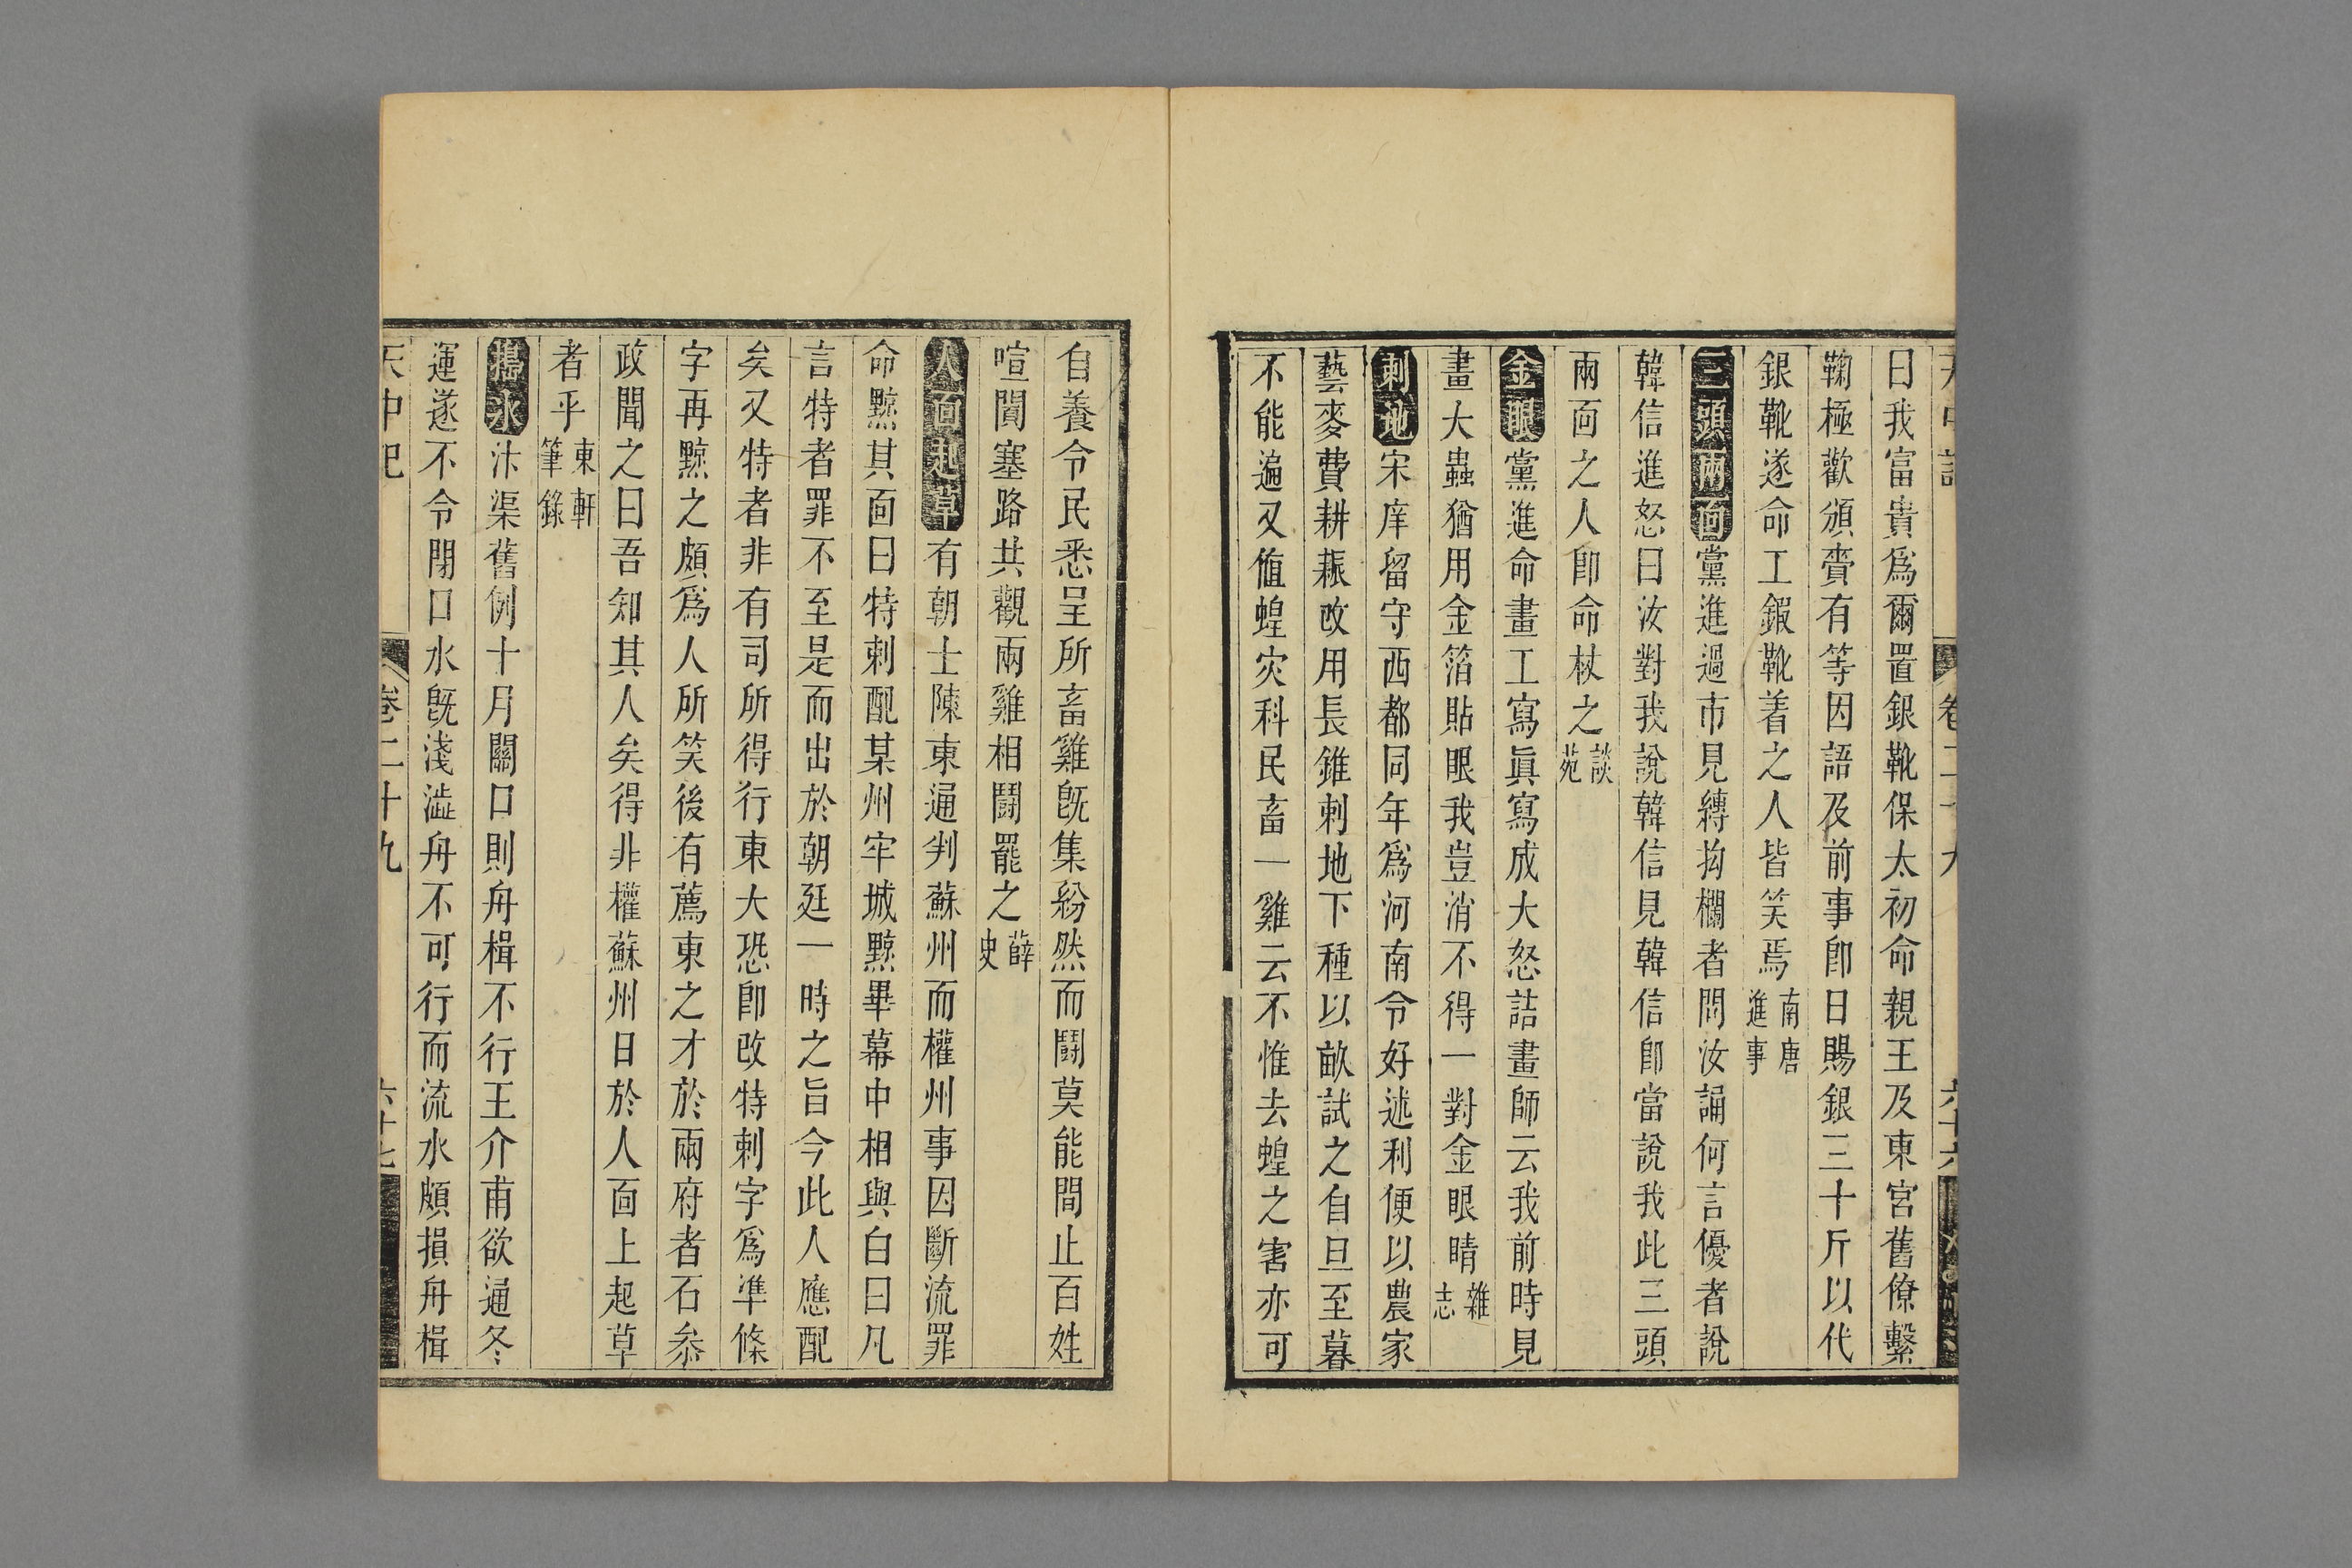 曰我富貴爲爾置銀靴保太初命親王及東宮舊僚繫
鞠極歡頒賚有等因語及前事卽日賜銀三十斤以代
銀靴遂命工鍜靴着之人皆笑焉南唐進事
三頭兩面黨進過市見縳抅欄者問汝誦何言優者說
韓信進怒曰汝對我說韓信見韓信卽當說我此三頭
兩面之人卽命杖之談苑
金眼黨進命畫工寫眞寫成大怒詰畫師云我前時見
畫大蟲猶用金箔貼眼我豈消不得一對金眼睛雜志
刺地宋庠留守西都同年爲河南令好述利便以農家
藝麥費耕耘改用長錐刺地下種以畝試之自旦至暮
不能遍又値蝗灾科民畜一雞云不惟去蝗之害亦可
自養令民悉呈所畜雞旣集紛然而鬪莫能間止百姓
喧闐塞路共觀兩雞相鬪罷之薛史
人面起草有朝士陳東通判蘇州而權州事因斷流罪
命黥其面曰特刺配某州牢城黥畢幕中相與白曰凡
言特者罪不至是而出於朝廷一時之旨今此人應配
矣又特者非有司所得行東大恐卽改特刺字爲準條
字再黥之頗爲人所笑後有薦東之才於兩府者石叅
政聞之曰吾知其人矣得非權蘇州日於人面上起草
者乎東軒筆錄
搗氷汴渠舊例十月關口則舟楫不行王介甫欲通冬
運遂不令閉口水旣淺澁舟不可行而流水頗損舟楫
天中記 卷二十九 六十七